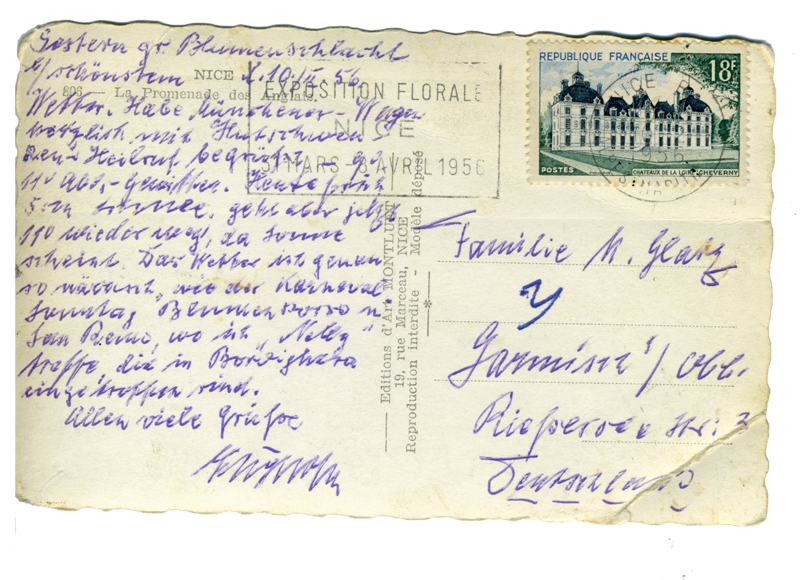 Gestern gr. Blumenschlacht
b/schönstem
NICE
10.III.56
806 — La Promenade des Anglais.
Wetter. Habe Münchener-Wagen
herzlich mit
Heilruf begrüßt
110 Heute früh
5 cm geht aber jetzt
wieder weg, da Sonne
scheint. Das Wetter ist genau
so wie der Karneval.
Sonntag Blumenkorso in
San Remo, wo ich "Nelly"
treffe, die in Bordighera
eingetroffen sind.
Allen viele Grüße
EXPOSITION FLORALE
NICE
31 MARS - 8 AVRIL 1956
Editions d'Art MONTLUET
19, rue Marceau, NICE
Reproduction interdite - Modèle déposé
REPUBLIQUE FRANÇAISE
18F
POSTES
CHATEAUX DE LA LOIRE. CHEVERNY
NICE
1956
Familie M. Glatz
Garmisch/Obb.
Rießersee Str. 3
Deutschland